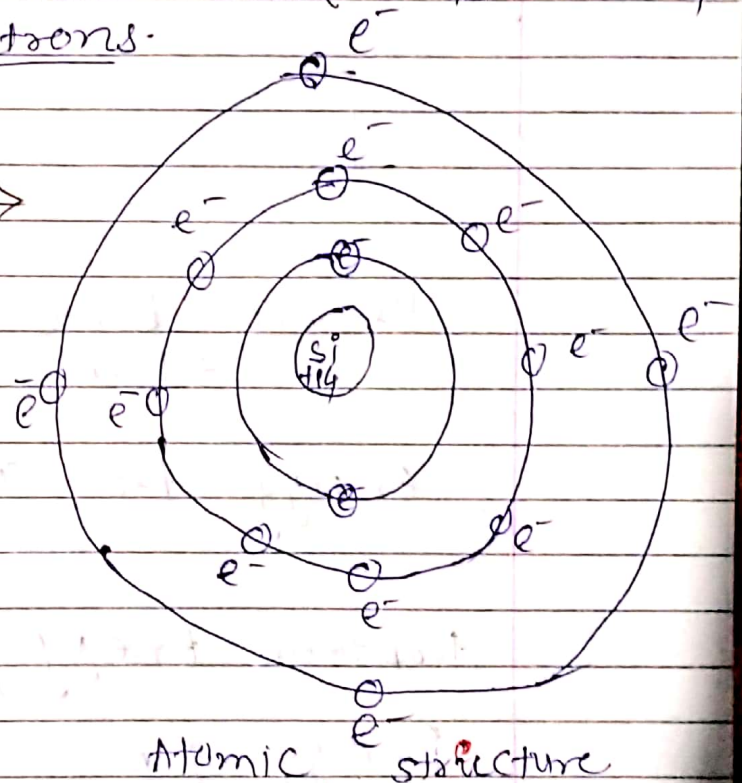 trons.
e⁻
e⁻
e⁻ e⁻
e⁻
Si
+14
e⁻ e⁻
e̅ e⁻
e⁻
e⁻ e⁻
e⁻
e⁻
Atomic structure